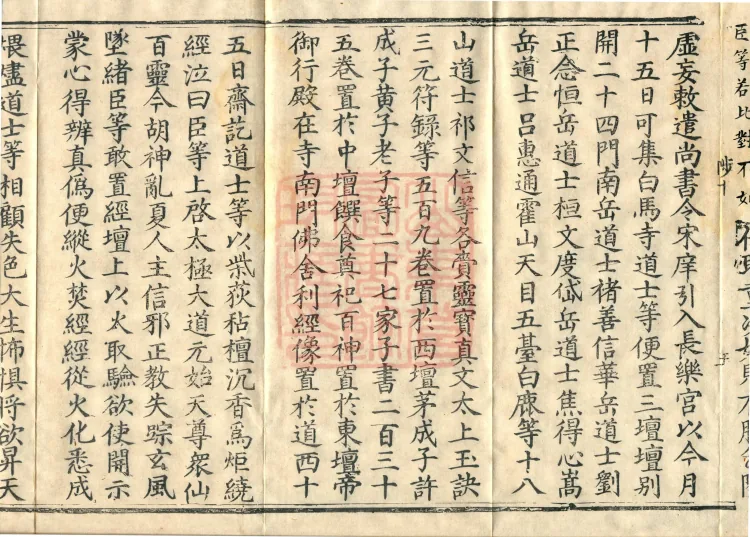 臣等若比對不如
陟十
虛妄敕遣尚書令宋庠引入長樂宮以今月
十五日可集白馬寺道士等便置三壇壇別
開二十四門南岳道士褚善信華岳道士劉
正念恒岳道士桓文度岱岳道士焦得心嵩
岳道士吕惠通霍山天目五臺白鹿等十八
山道士祁文信等各賷靈寶真文太上玉訣
三元符錄等五百九卷置於西壇茅成子許
成子黄子老子等二十七家子書二百三十
五卷置於中壇饌食奠祀百神置於東壇帝
御行殿在寺南門佛舍利經像置於道西十
五日齋訖道士等以柴荻秥檀沉香爲炬繞
經泣曰臣等上啓太極大道元始天尊衆仙
百靈今胡神亂夏人主信邪正教失踪玄風
墜緒臣等敢置經壇上以火取驗欲使開示
蒙心得辨真僞便縱火焚經經從火化悉成
煨燼道士等相顧失色大生怖懼将欲昇天